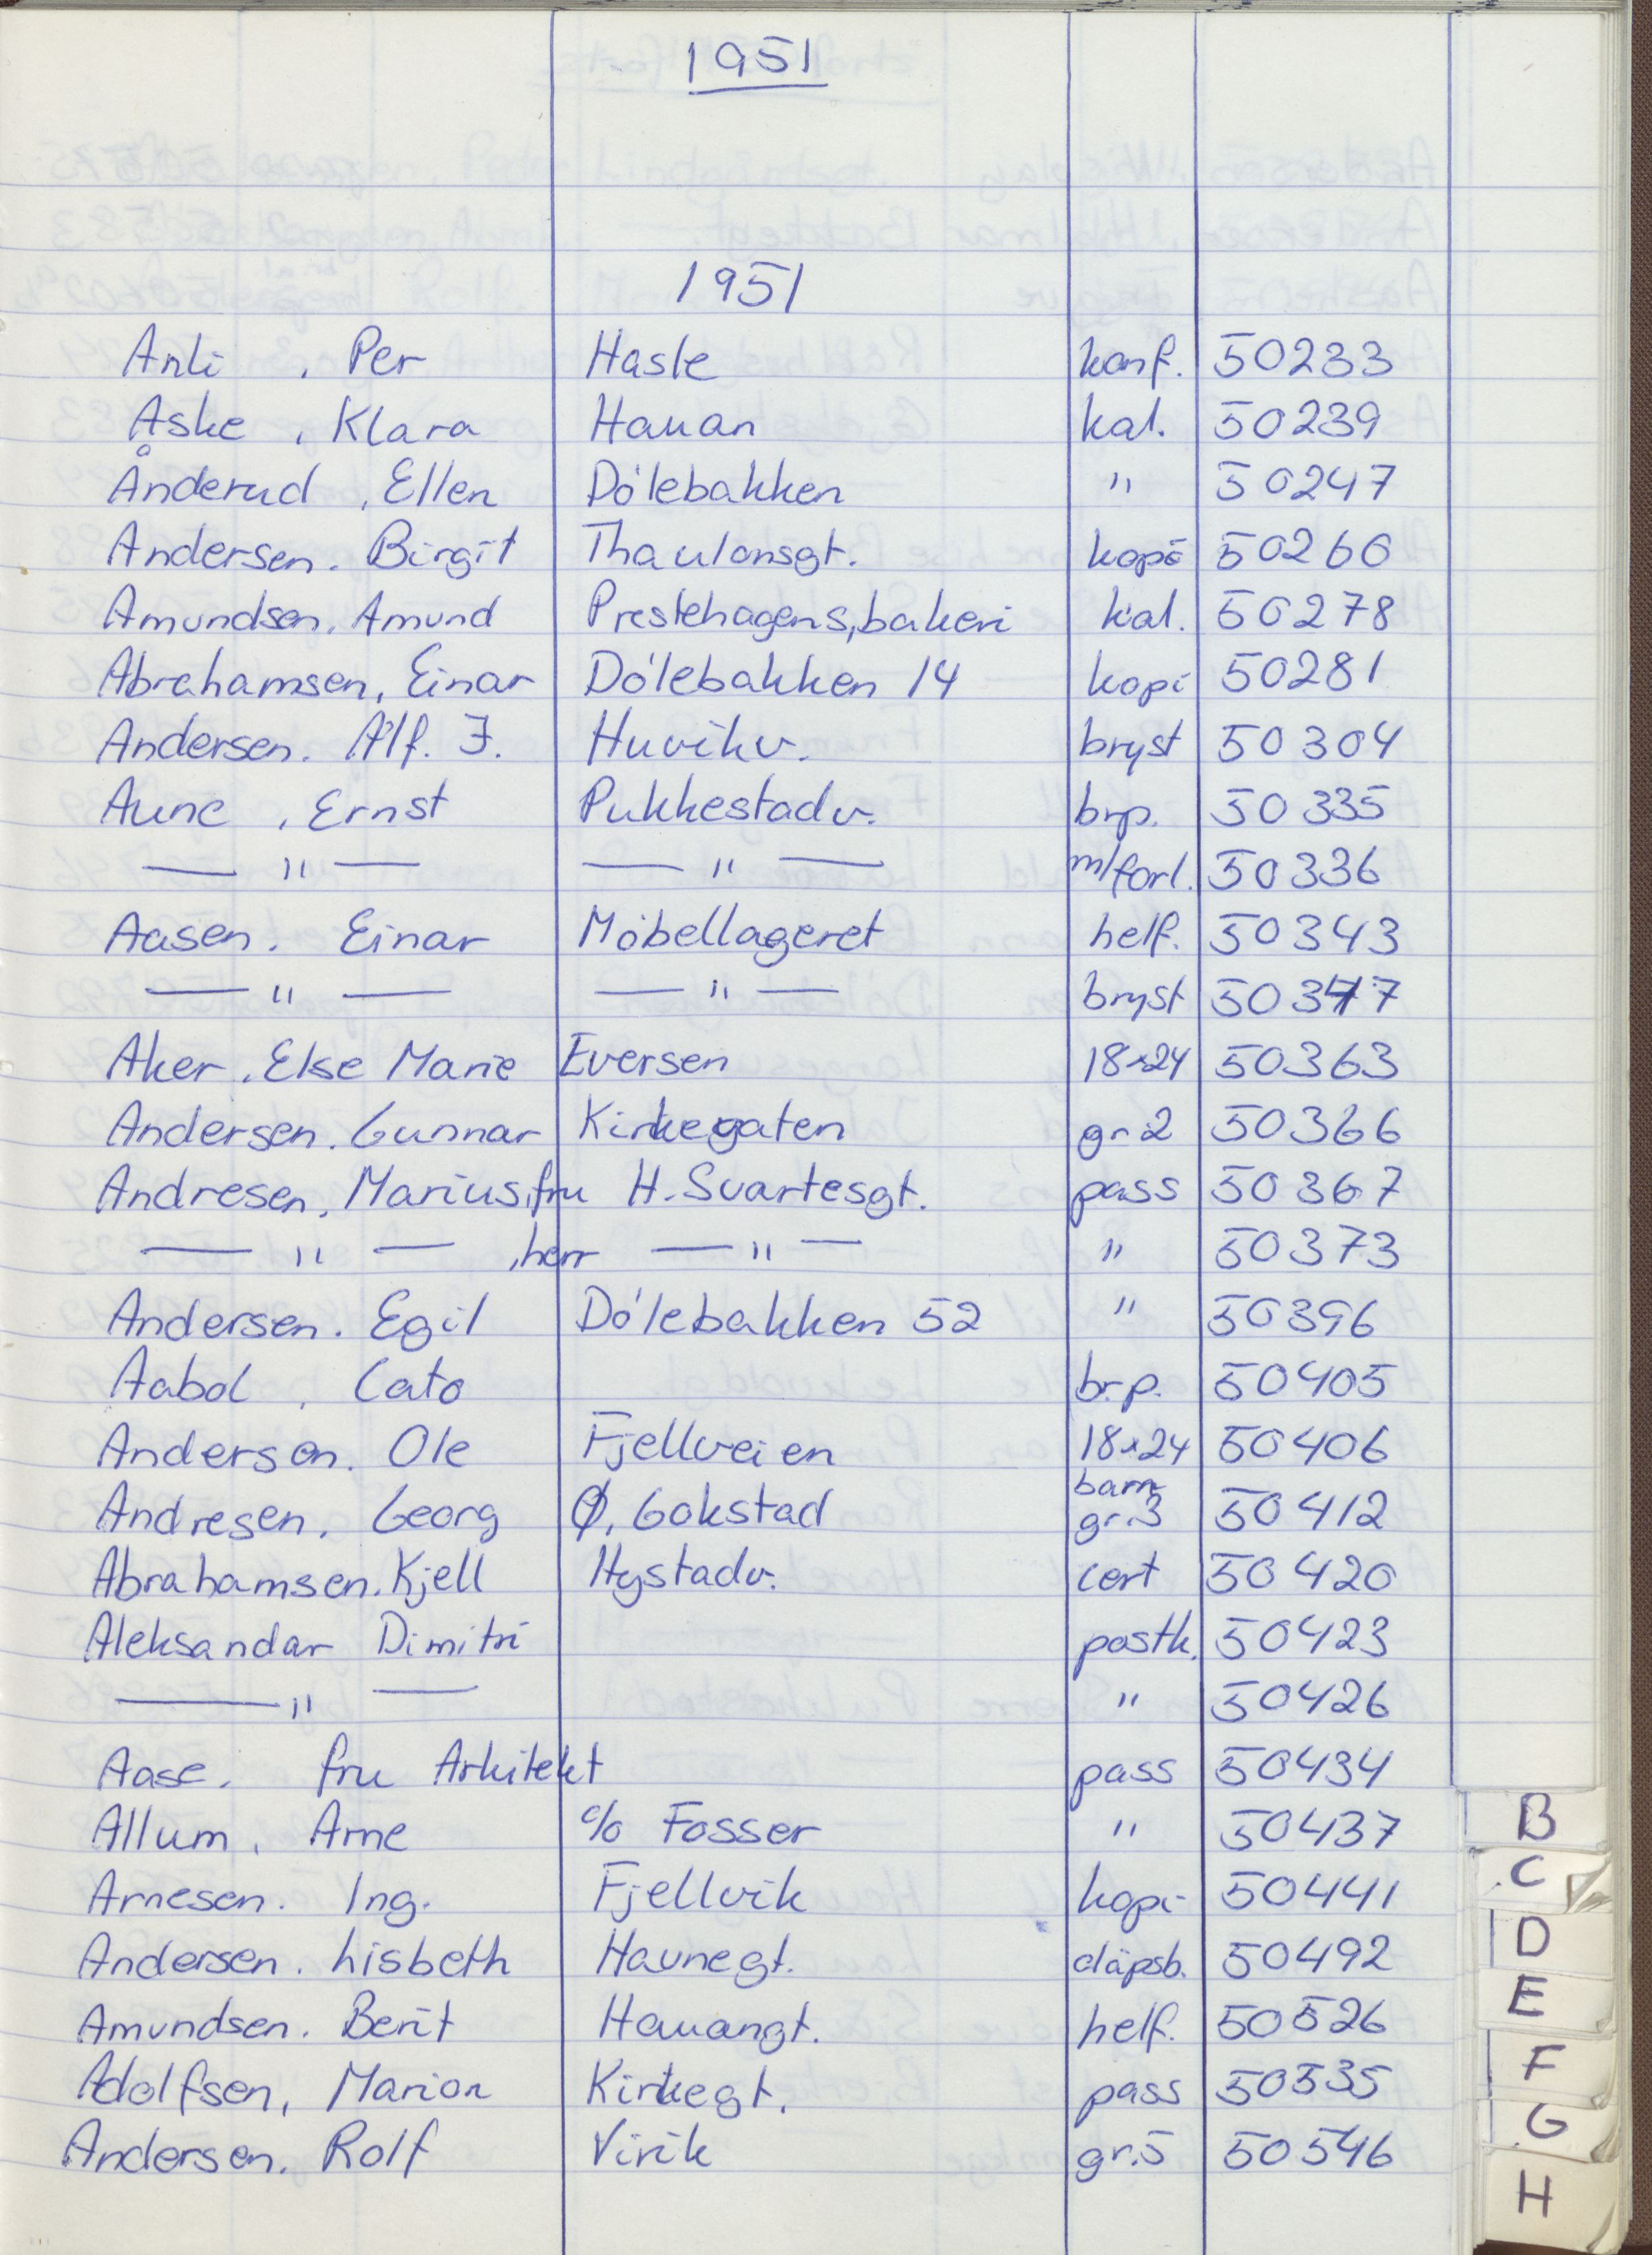 1951
1951
Anli , Per Hasle konf. 50233
Aske , Klara Hauan kal. 50239
Ånderud , Ellen Dølebakken " 50247
Andersen. Birgit Thaulowsgt. kopi 50260
Amundsen. Amund Prestehagens, bakeri kal. 50278
Abrahamsen, Einar Dølebakken 14 kopi 50281
Andersen. Alf. J. Huvikv. bryst 50304
Aune , Ernst Pukkestadv. brp. 50335
— " — — " — m/forl. 50336
Aasen. Einar Møbellageret helf. 50343
— " — — " — bryst 50347
Aker. Else Marie Eversen 18x24 50363
Andersen. Gunnar Kirkegaten gr 2 50366
Andresen, Marius, fru H. Svartesgt. pass 50367
— " — , herr — " — " 50373
Andersen. Egil Dølebakken 52 " 50396
Aabol , Cato br.p. 50405
Anderson. Ole Fjellveien 18x24 50406
Andresen, Georg Ø. Gokstad barn gr.3 50412
Abrahamsen. Kjell Hystadv. cert 50420
Aleksandar Dimitri postk. 50423
— " — " 50426
Aase. fru Arkitekt pass 50434
Allum. Arne c/o Fosser " 50437
Arnesen. Ing. Fjellvik kopi 50441
Andersen. Lisbeth Havnegt. dåpsb. 50492
Amundsen. Berit Hauangt. helf. 50526
Adolfsen, Marion Kirkegt. pass 50535
Andersen. Rolf Virik gr.5 50546
B
C
D
E
F
G
H